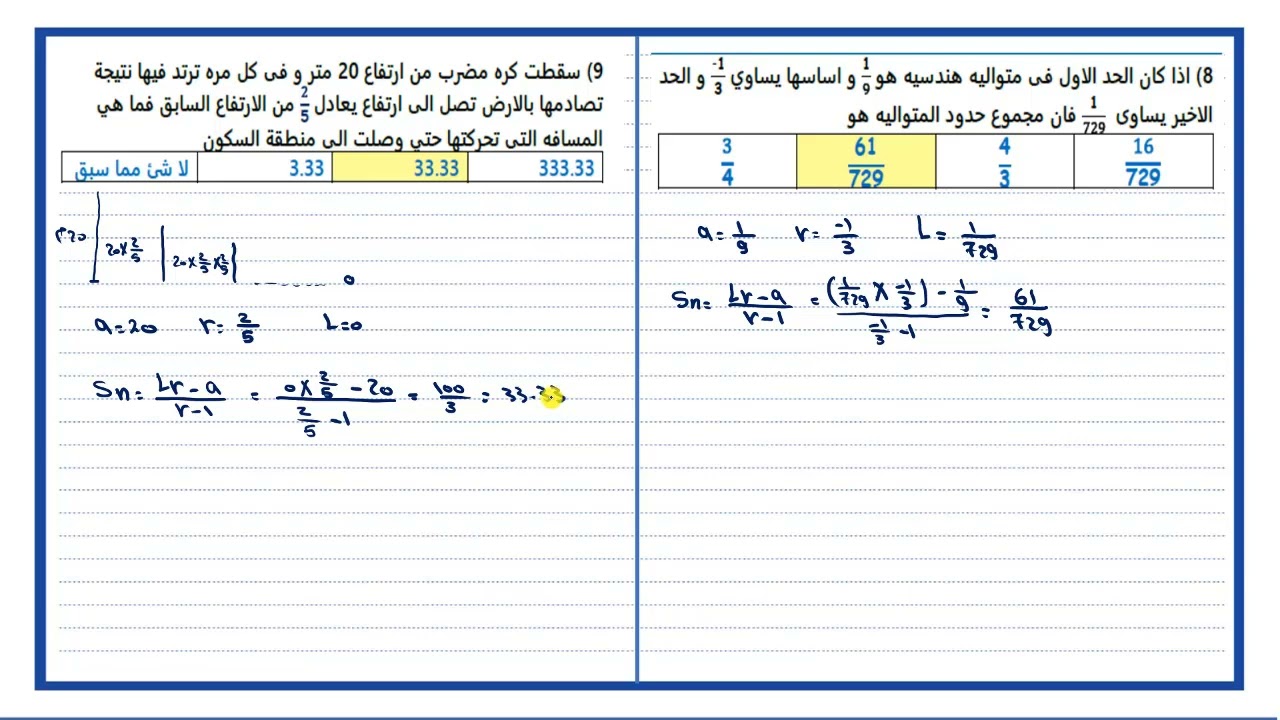 8) اذا كان الحد الاول فى متواليه هندسيه هو 1/9 و اساسها يساوي -1/3 و الحد
الاخير يساوى 1/729 فان مجموع حدود المتواليه هو
16/729 4/3 61/729 3/4
a = 1/9 r = -1/3 L = 1/729
Sn = Lr - a / r - 1 = (1/729 × -1/3) - 1/9 / -1/3 - 1 = 61/729
9) سقطت كره مضرب من ارتفاع 20 متر و فى كل مره ترتد فيها نتيجة
تصادمها بالارض تصل الى ارتفاع يعادل 2/5 من الارتفاع السابق فما هي
المسافه التى تحركتها حتي وصلت الى منطقة السكون
333.33 33.33 3.33 لا شئ مما سبق
20 20×2/5 20×2/5×2/5 ........ 0
a = 20 r = 2/5 L = 0
Sn = Lr - a / r - 1 = 0 × 2/5 - 20 / 2/5 - 1 = 100/3 = 33.33